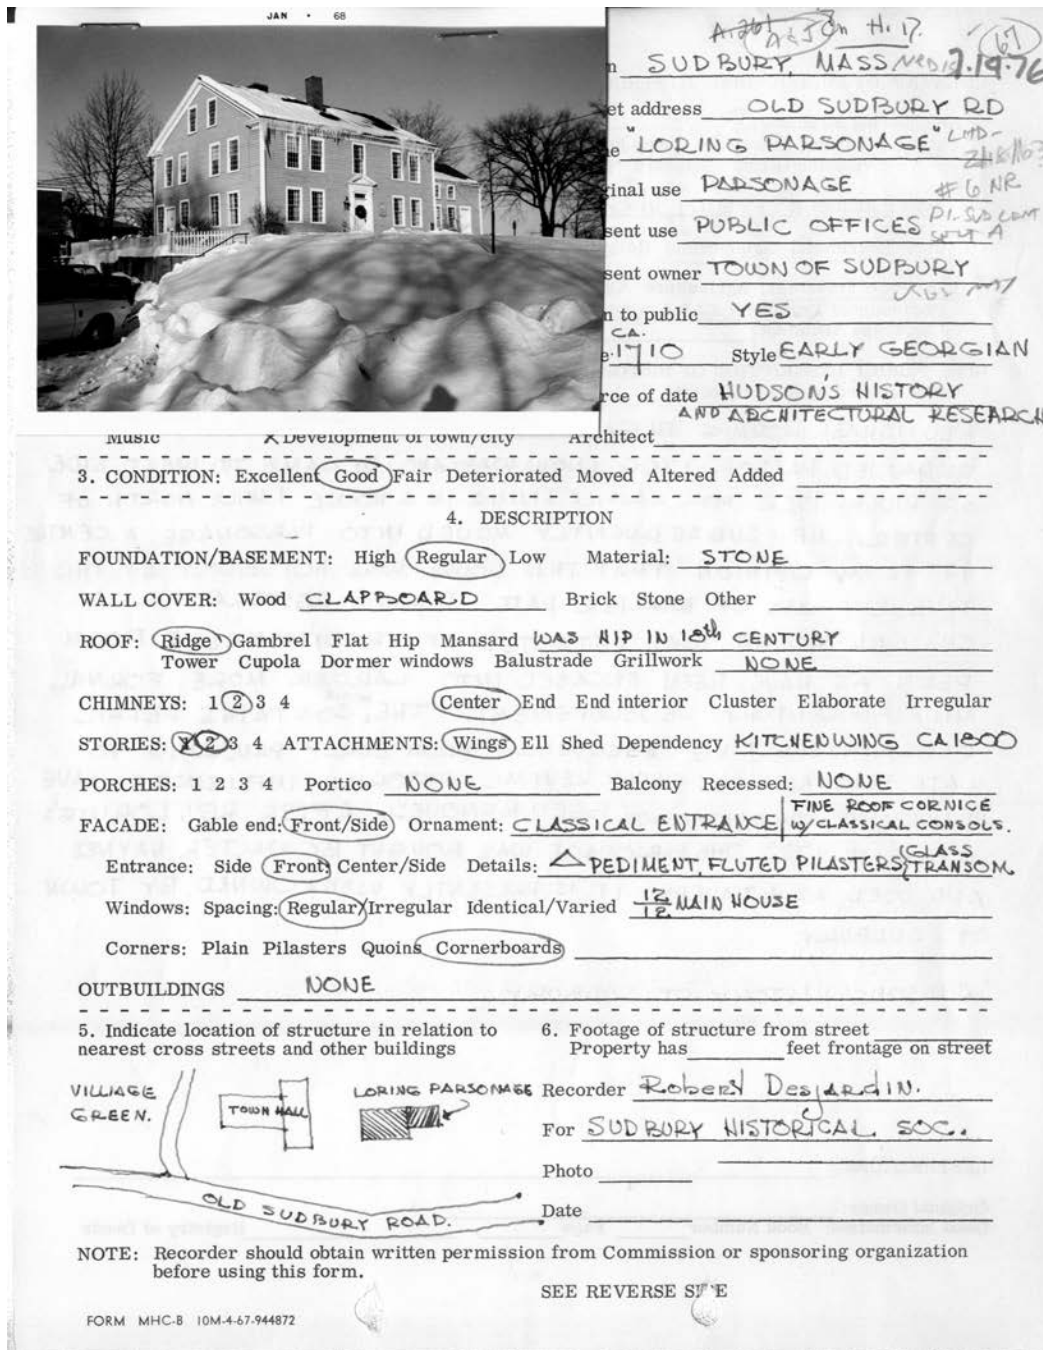 JAN • 68
A-261 A&J On H.17.
67
SUDBURY, MASS NRDIS 7.19.76
et address OLD SUDBURY RD
"LORING PARSONAGE" LMD-
inal use PARSONAGE # 6 NR
sent use PUBLIC OFFICES
sent owner TOWN OF SUDBURY
n to public YES
CA.
1710 Style EARLY GEORGIAN
rce of date HUDSON'S HISTORY
AND ARCHITECTURAL RESEARCH
Music X Development of town/city Architect
3. CONDITION: Excellent Good Fair Deteriorated Moved Altered Added
4. DESCRIPTION
FOUNDATION/BASEMENT: High Regular Low Material: STONE
WALL COVER: Wood CLAPBOARD Brick Stone Other
ROOF: Ridge Gambrel Flat Hip Mansard WAS HIP IN 18th CENTURY
Tower Cupola Dormer windows Balustrade Grillwork NONE
CHIMNEYS: 1 2 3 4 Center End End interior Cluster Elaborate Irregular
STORIES: 1 2 3 4 ATTACHMENTS: Wings Ell Shed Dependency KITCHEN WING CA 1800
PORCHES: 1 2 3 4 Portico NONE Balcony Recessed: NONE
FACADE: Gable end: Front/Side Ornament: CLASSICAL ENTRANCE FINE ROOF CORNICE W/CLASSICAL CONSOLS.
Entrance: Side Front: Center/Side Details: PEDIMENT, FLUTED PILASTERS, (GLASS TRANSOM.
Windows: Spacing: Regular/Irregular Identical/Varied 12/12 MAIN HOUSE
Corners: Plain Pilasters Quoins Cornerboards
OUTBUILDINGS NONE
5. Indicate location of structure in relation to
nearest cross streets and other buildings
6. Footage of structure from street
Property has feet frontage on street
VILLIAGE
GREEN.
TOWN HALL
LORING PARSONAGE
OLD SUDBURY ROAD.
Recorder Robert Desjardin.
For SUDBURY HISTORICAL SOC.
Photo
Date
NOTE: Recorder should obtain written permission from Commission or sponsoring organization
before using this form.
SEE REVERSE SIDE
FORM MHC-B 10M-4-67-944872